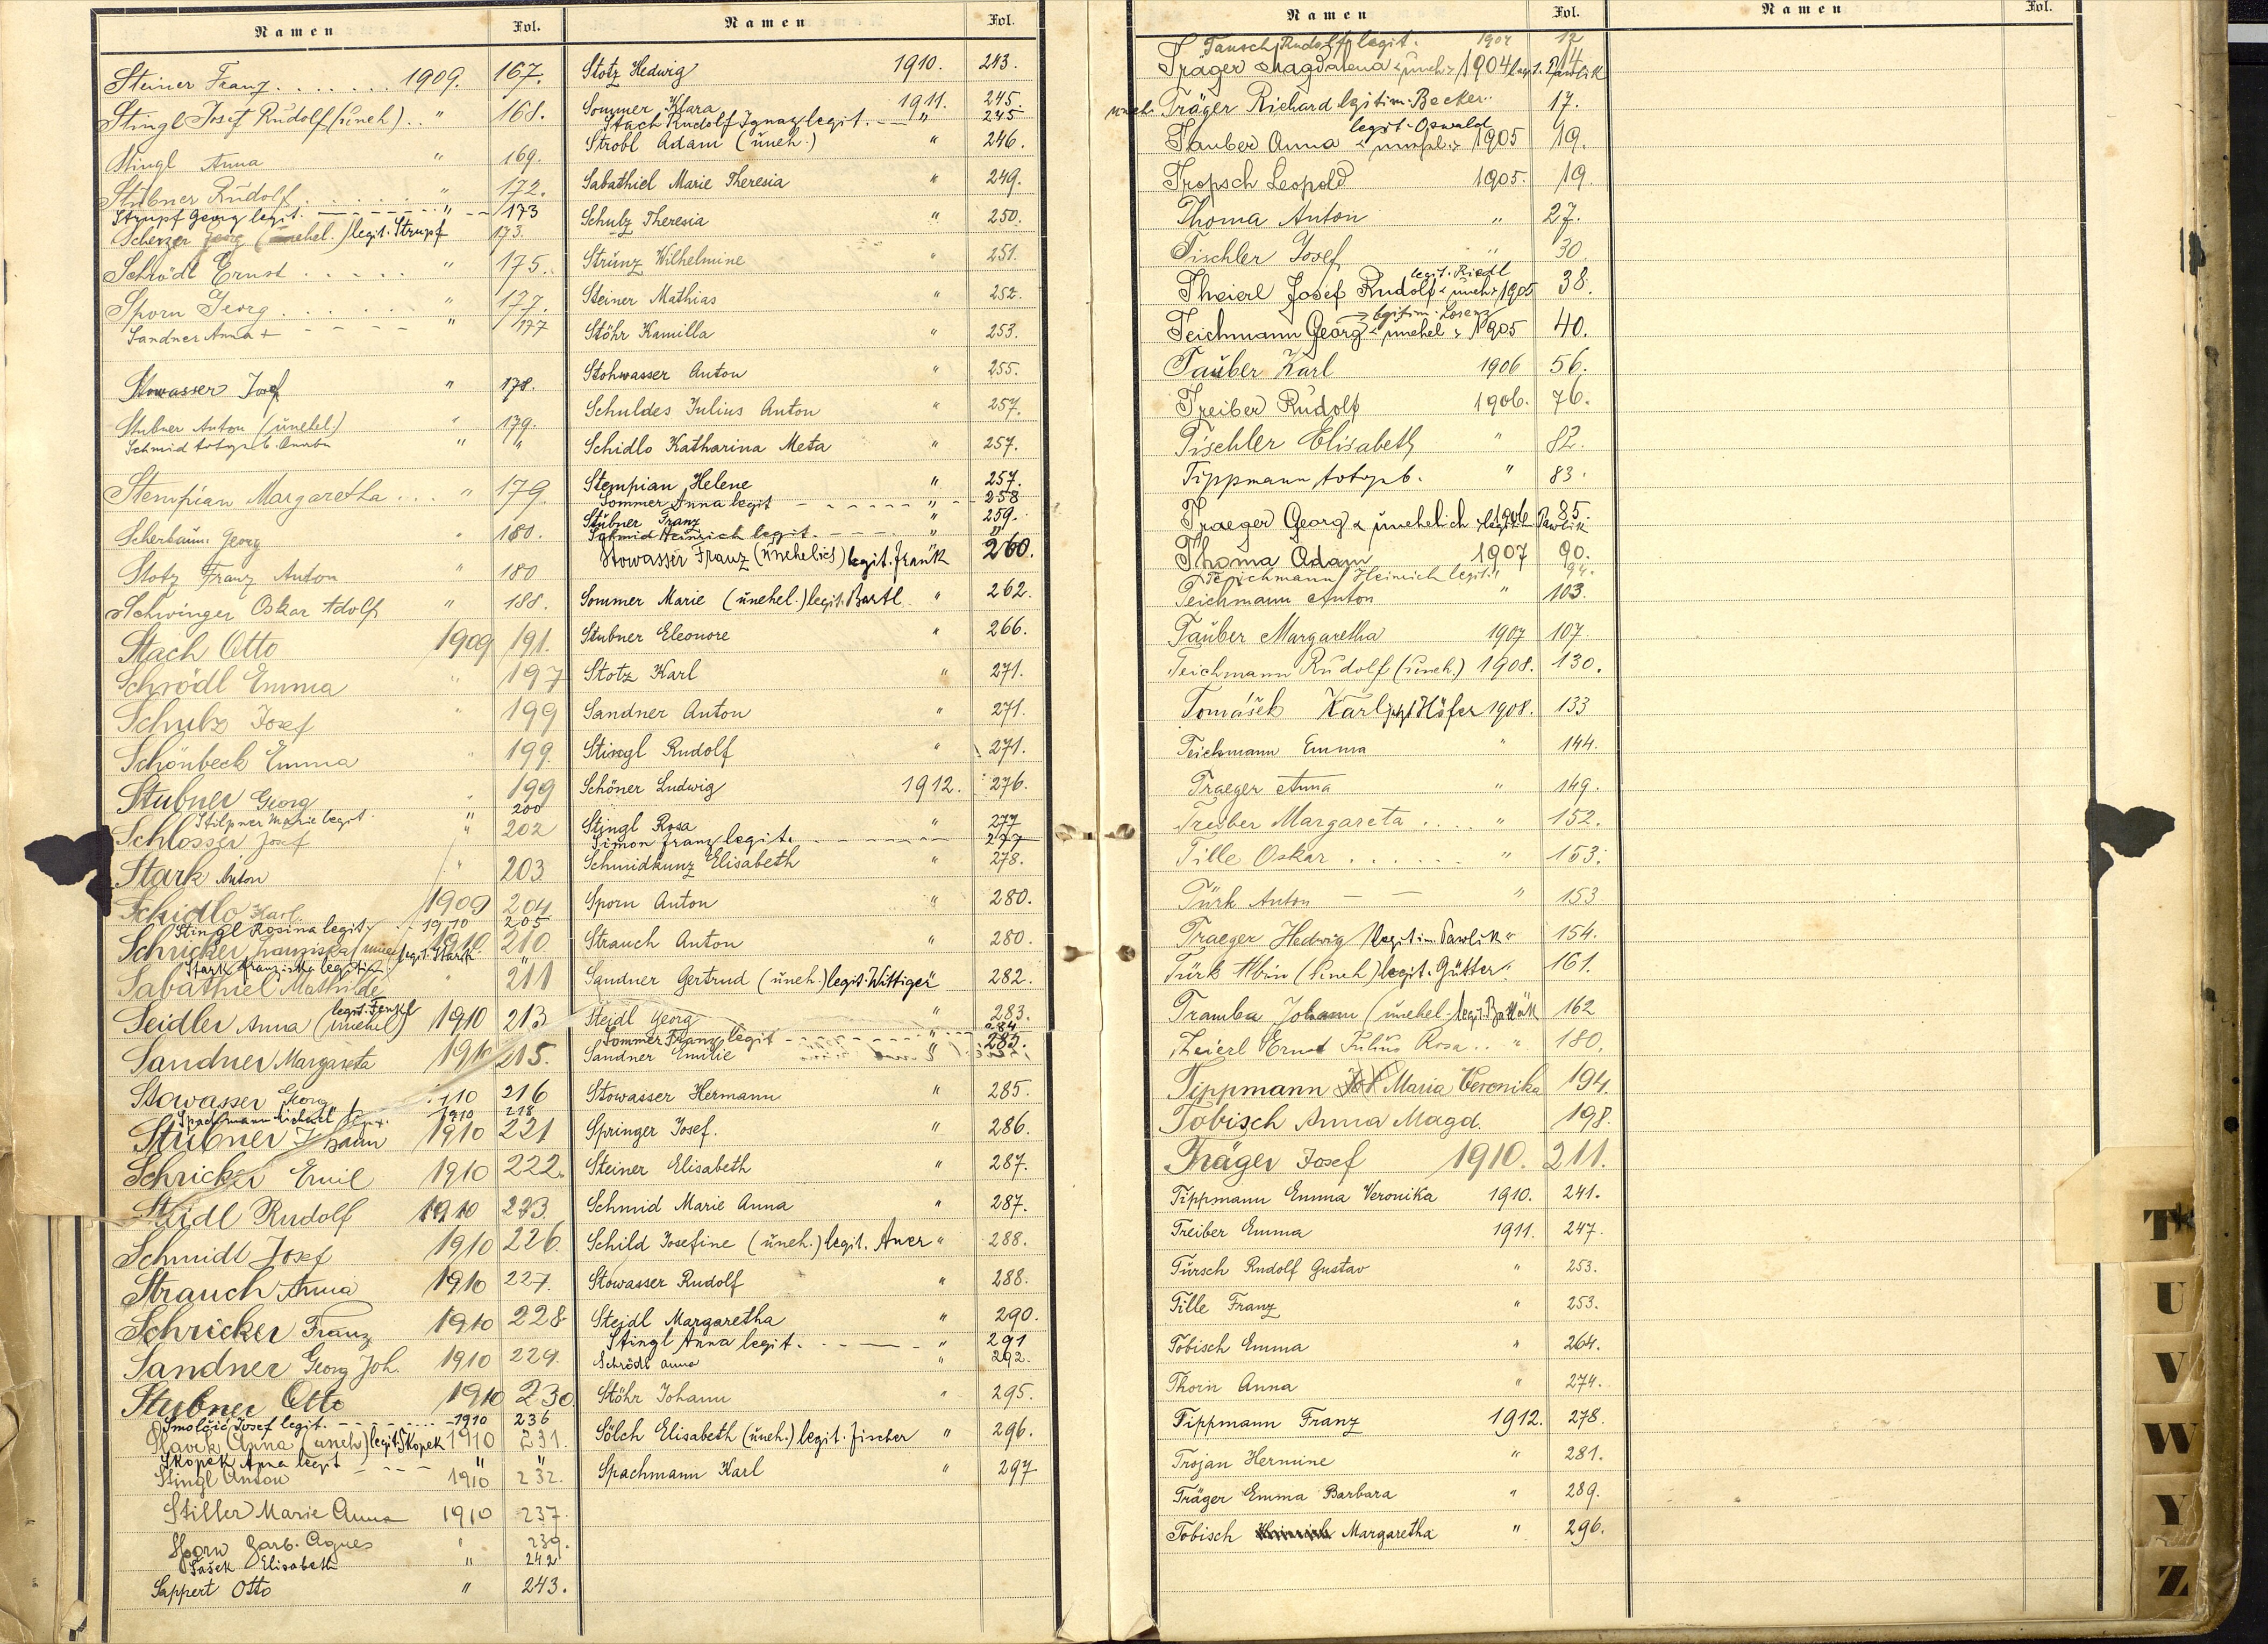 Namen Fol.
Steiner Franz . . . . . . . 1909. 167.
Stingl Josef Rudolf (űneh.) . . " 168.
Stingl Anna " 169.
Stübner Rudolf . . . . . " 172.
Strupf Georg legit. - - - - - - " - - 173
Scherzer Georg (unehel.) legit. Strupf 173.
Schrödl Ernst . . . . . " 175.
Sporn Georg . . . . . " 177.
Sandner Anna + - - - - " 177
Stowasser Josef " 178.
Stubner Anton (űnehel.) " 179.
Schmid totgeb. " "
Stempian Margaretha . . . " 179.
Scherbaum Georg " 180.
Stotz Franz Anton " 180
Schwinger Oskar Adolf " 188.
Stach Otto 1909 191.
Schrödl Emma " 197
Schulz Josef " 199
Schönbeck Emma " 199.
Stubner Georg " 199
Stilpner Marie legit. " 200
Schlosser Josef " 202
Stark Anton " 203
Schidlo Karl. 1909 204
Stingl Rosina legit. . . 1910 205
Schricker Franziska legit. Stark 1910 210
Stark Franziska legitim. "
Sabathiel Mathilde " 211
legit. Fenkl
Seidler Anna (űnehel) 1910 213
Sandner Margareta 1910 215.
Stowasser Georg 1910 216
Spachmann Michael 1910 218
Stubner Johann 1910 221
Schricker Emil 1910 222.
Steidl Rudolf 1910 223.
Schmidl Josef 1910 226.
Strauch Anna 1910 227.
Schricker Franz 1910 228
Sandner Georg Joh. 1910 229.
Stubner Otto 1910 230
Smolčić Josef legit. - - - - - 1910 236
Slavik Anna (űneh) legit. Skopek 1910 231.
Skopek Anna legit - - - " "
Stingl Anton 1910 232.
Stiller Marie Anna 1910 237.
Sporn Barb. Agnes " 239.
Sašek Elisabeth " 242
Sappert Otto " 243.
Namen Fol.
Stotz Hedwig 1910. 243.
Sommer Klara 1911. 245.
Stach Rudolf Ignaz legit. - — " 245
Strobl Adam (űneh.) " 246.
Sabathiel Marie Theresia " 249.
Schulz Theresia " 250.
Strunz Wilhelmine " 251.
Steiner Mathias " 252.
Stöhr Kamilla " 253.
Stohwasser Anton " 255.
Schuldes Julius Anton " 257.
Schidlo Katharina Meta " 257.
Stempian Helene " 257.
Sommer Anna legit - - - - - " - - 258
Stübner Franz " 259.
Schmid Heinrich legit. - - - - " "
Stowasser Franz (űnehelich) legit. Frank 260.
Sommer Marie (űnehel.) legit. Bartl " 262.
Stubner Eleonore " 266.
Stotz Karl " 271.
Sandner Anton " 271.
Stingl Rudolf " 271.
Schöner Ludwig 1912. 276.
Stingl Rosa " 277
Simon Franz legit. - - - - - 277
Schmidkunz Elisabeth " 278.
Sporn Anton " 280.
Strauch Anton " 280.
Sandner Gertrud (űneh.) legit. Wittiger " 282.
Steidl Georg " 283.
Sommer Franz legit - - - - - " - - 284
Sandner Emilie " 283.
Stowasser Hermann " 285.
Springer Josef. " 286.
Steiner Elisabeth " 287.
Schmid Marie Anna " 287.
Schild Josefine (űneh.) legit. Auer " 288.
Stowasser Rudolf " 288.
Steidl Margaretha " 290.
Stingl Anna legit. - - — - " 291
Schrödl Anna " 292.
Stöhr Johann " 295.
Sölch Elisabeth (űneh.) legit. Fischer " 296.
Spachmann Karl " 297
Namen Fol.
Tausch Rudolf legit. 1904 12
Träger Magdalena "űneh" 1904 legit. Pawlik 14
uneh. Träger Richard legitim. Becker " 17.
legit. Oswald
Tauber Anna "unehel." 1905 19.
Tropsch Leopold 1905. 19.
Thoma Anton " 27.
Tischler Josef " 30
legit. Riedl
Theierl Josef Rudolf "űneh" 1905 38.
→ legitim. Lorenz
Teichmann Georg "unehel" 1905 40.
Tauber Karl 1906 56.
Treiber Rudolf 1906. 76.
Tischler Elisabeth " 82.
Tippmann totgeb. " 83.
Traeger Georg "űnehelich" 1906 legitim. Pawlik 85.
Thoma Adam 1907 90.
Teichmann Heinrich legit. "
Teichmann Anton " 103.
Tauber Margaretha 1907 107.
Teichmann Rudolf (űneh.) 1908. 130.
Tomášek Karl Höfer 1908. 133
Teichmann Emma " 144.
Traeger Anna " 149.
Treiber Margareta . . . . " 152.
Tille Oskar . . . . . . " 153.
Türk Anton — — " 153
Traeger Hedwig legitim. Pawlik " 154.
Türk Albin (űneh) legit. Gütter " 161.
Tramba Johann (űnehel.) legit. 162
Theierl Ernst Julius Rosa . . " 180.
Tippmann Maria Veronika 194.
Tobisch Anna Magd. 198.
Träger Josef 1910. 211.
Tippmann Emma Veronika 1910. 241.
Treiber Emma 1911. 247.
Türsch Rudolf Gustav " 253.
Tille Franz " 253.
Tobisch Emma " 264.
Thorn Anna " 274.
Tippmann Franz 1912. 278.
Trojan Hermine " 281.
Träger Emma Barbara " 289.
Tobisch Margaretha " 296.
Namen Fol.
T
U
V
W
Y
Z